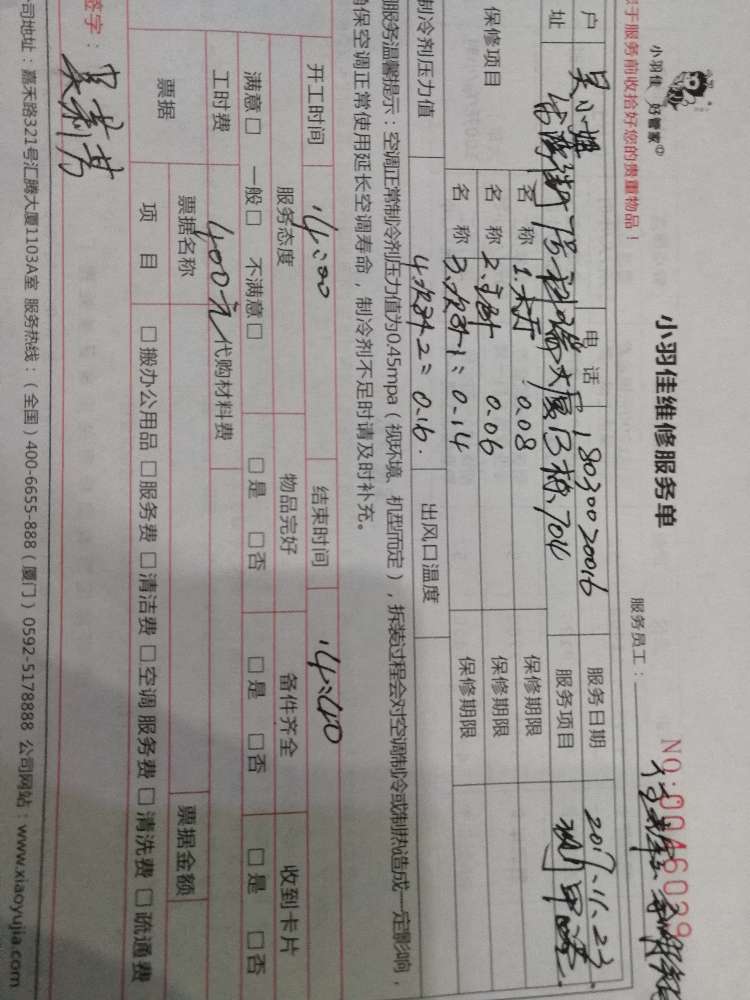 小羽佳 好管家
于服务前收拾好您的贵重物品！
小羽佳维修服务单
服务员工：
NO:00A6039
户 吴小姐 电话 18030020016 服务日期 2017.11.23
址 大厦B栋704 服务项目 测甲醛
保修项目 名称 1. 0.08 保修期限
名称 2.主卧 0.06 保修期限
名称 3.次卧1：0.14 保修期限
制冷剂压力值 4.次卧2：0.16. 出风口温度
服务温馨提示：空调正常制冷剂压力值为0.45mpa（视环境、机型而定），拆装过程会对空调制冷或制热造成一定影响，
确保空调正常使用延长空调寿命，制冷剂不足时请及时补充。
开工时间 14:00 结束时间 14:40
服务态度 物品完好 备件齐全 收到卡片
满意□ 一般□ 不满意□ □是 □否 □是 □否 □是 □否
工时费 400元 代购材料费
票据 票据名称 票据金额
项目 □搬办公用品 □服务费 □清洁费 □空调服务费 □清洗费 □疏通费
签字：
司地址：嘉禾路321号汇腾大厦1103A室 服务热线：（全国）400-6655-888（厦门）0592-5178888 公司网站：www.xiaoyujia.com